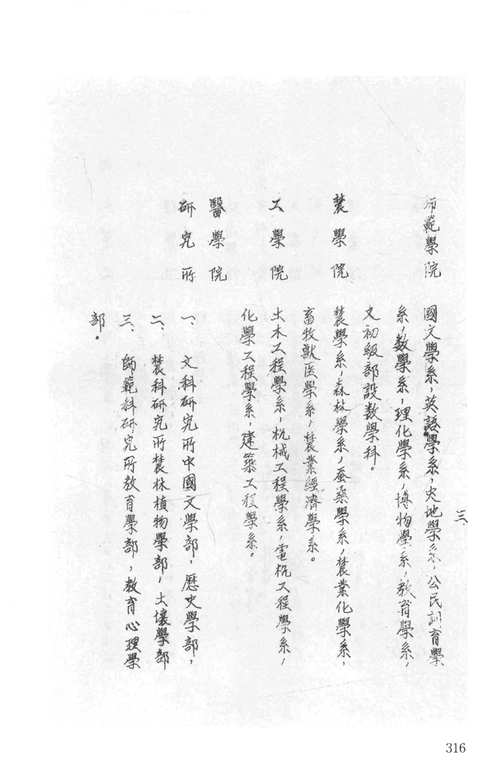 三、
師範學院
國文學系，英語學系，史地學系，公民訓育學
系，數學系，理化學系，博物學系，教育學系，
又初級部設數學科，
農學院
農學系，森林學系，蚕桑學系，農業化學系，
畜牧獸医學系，農業經濟學系。
工學院
土木工程學系，机械工程學系，電机工程學系，
化學工程學系，建築工程學系，
醫學院
研究所
一、文科研究所中國文學部，歷史學部，
二、農科研究所農林植物學部，土壤學部
三、師範科研究所教育學部，教育心理學
部。
316